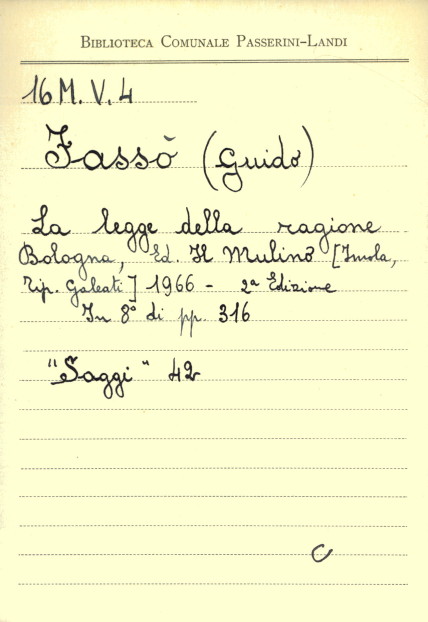 BIBLIOTECA COMUNALE PASSERINI-LANDI
16 M. V. 4
Fassò (Guido)
La legge della ragione
Bologna, Ed. Il Mulino [Imola,
Tip. Galeati] 1966 - 2ª Edizione
In 8° di pp. 316
"Saggi" 42
C